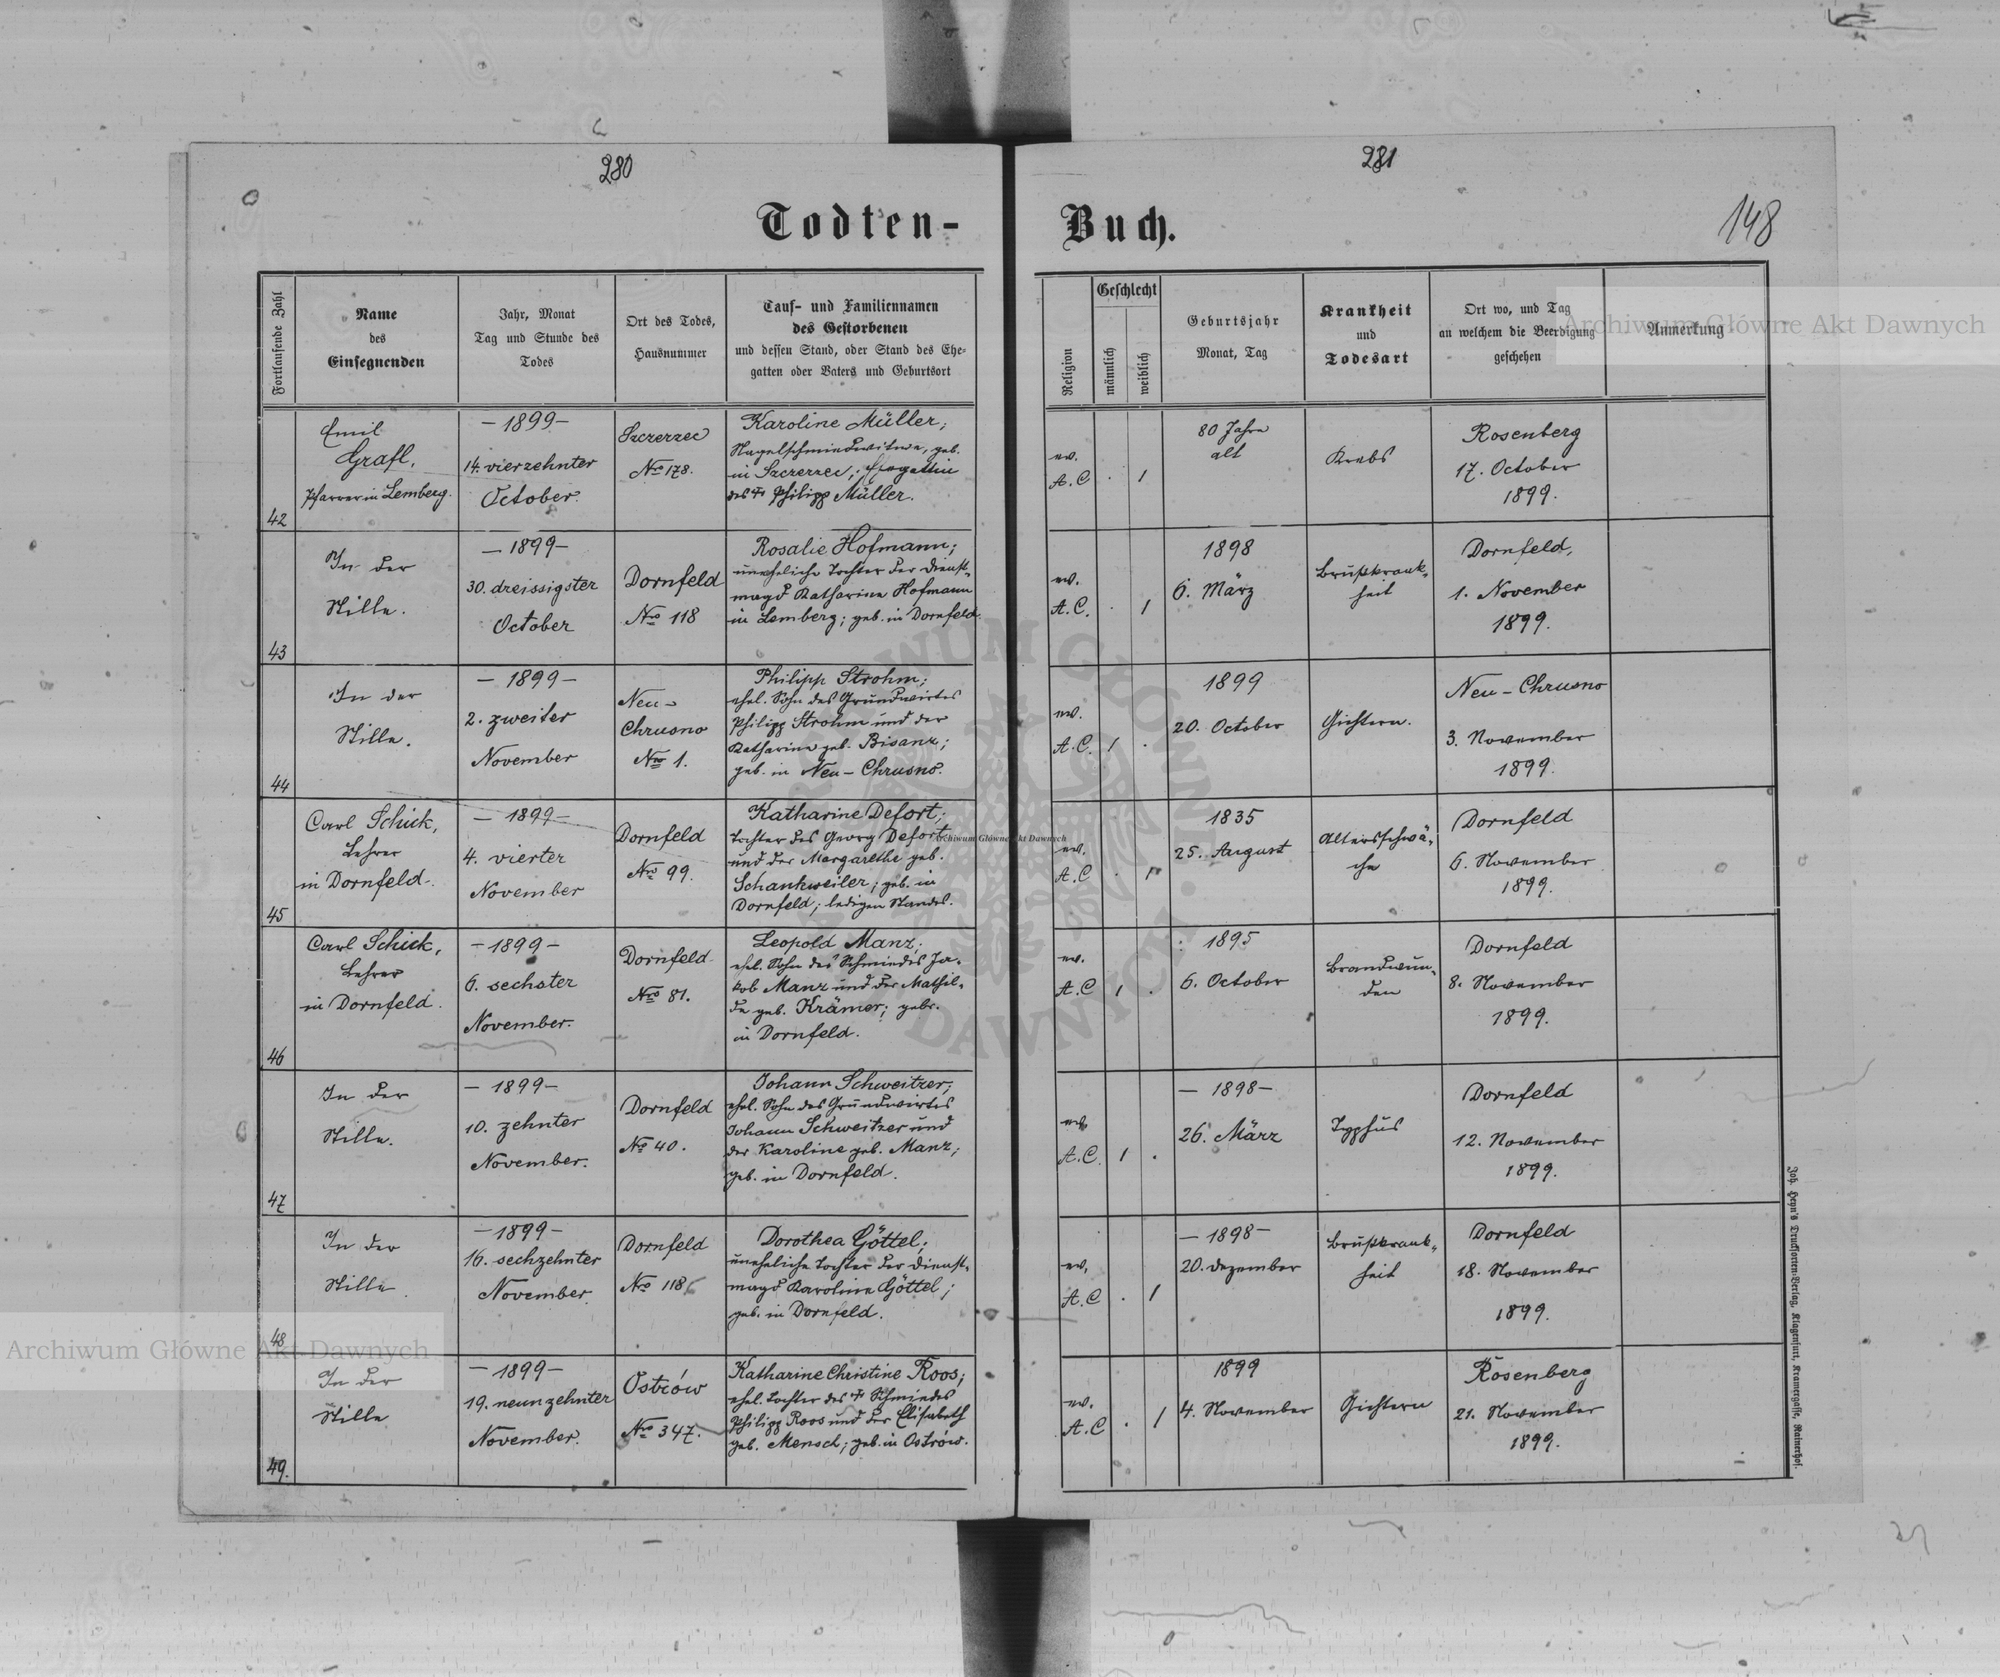 280
281
148
Todten-
Buch.
Fortlaufende Zahl
Name
des
Einsegnenden
Jahr, Monat
Tag und Stunde des
Todes
Ort des Todes,
Hausnummer
Tauf- und Familiennamen
des Gestorbenen
und dessen Stand, oder Stand des Ehe-
gatten oder Vaters und Geburtsort
Religion
Geschlecht
männlich
weiblich
Geburtsjahr
Monat, Tag
Krankheit
und
Todesart
Ort wo, und Tag
an welchem die Beerdigung
geschehen
Anmerkung
Archiwum Główne Akt Dawnych
42
Emil
Grafl,
Pfarrer in Lemberg.
- 1899 -
14. vierzehnter
October.
Szczerzec
Nro 178.
Karoline Müller;
Nagelschmiedwitwe, geb.
in Szczerzec; Ehegattin
des † Philipp Müller.
ev.
A. C
. 1
80 Jahre
alt
Krebs
Rosenberg
17. October
1899.
43
In der
Stille.
- 1899 -
30. dreissigster
October
Dornfeld
Nro 118
Rosalie Hofmann;
uneheliche Tochter der Dienst-
magd Katharina Hofmann
in Lemberg; geb. in Dornfeld.
ev.
A. C.
. 1
1898
6. März
Brustkrank-
heit
Dornfeld,
1. November
1899.
44
In der
Stille.
- 1899 -
2. zweiter
November
Neu-
Chrusno
Nro 1.
Philipp Strohm;
ehel. Sohn des Grundwirtes
Philipp Strohm und der
Katharina geb. Bisanz;
geb. in Neu-Chrusno.
ev.
A. C.
1 .
1899
20. October
Gichtern.
Neu-Chrusno
3. November
1899.
45
Carl Schick,
Lehrer
in Dornfeld.
- 1899 -
4. vierter
November
Dornfeld
Nro 99.
Katharine Defort;
Tochter des Georg Defort
und der Margarethe geb.
Schankweiler; geb. in
Dornfeld; ledigen Standes.
Archiwum Główne Akt Dawnych
ev.
A. C
. 1
1835
25. August
Altersschwä-
che
Dornfeld
6. November
1899.
46
Carl Schick,
Lehrer
in Dornfeld.
- 1899 -
6. sechster
November.
Dornfeld
Nro 81.
Leopold Manz;
ehel. Sohn des Schmiedes Ja-
kob Manz und der Mathil-
de geb. Krämer; gebr.
in Dornfeld.
ev.
A. C
1 .
1895
6. October
Brandwun-
den
Dornfeld
8. November
1899.
47
In der
Stille.
- 1899 -
10. zehnter
November.
Dornfeld
Nro 40.
Johann Schweitzer;
ehel. Sohn des Grundwirtes
Johann Schweitzer und
der Karoline geb. Manz;
geb. in Dornfeld.
ev.
A. C.
1 .
- 1898 -
26. März
Typhus
Dornfeld
12. November
1899.
48
In der
Stille.
- 1899 -
16. sechzehnter
November.
Dornfeld
Nro 118
Dorothea Göttel;
uneheliche Tochter der Dienst-
magd Karoline Göttel;
geb. in Dornfeld.
ev.
A. C
. 1
- 1898 -
20. Dezember
Brustkrank-
heit
Dornfeld
18. November
1899.
49.
In der
Stille
- 1899 -
19. neunzehnter
November.
Ostrów
Nro 347.
Katharine Christine Roos;
ehel. Tochter des † Schmiedes
Philipp Roos und der Elisabeth
geb. Mensch; geb. in Ostrów.
ev.
A. C
. 1
1899
4. November
Gichtern
Rosenberg
21. November
1899.
Joh. Heyn's Drucksorten-Verlag, Klagenfurt, Kramergasse, Rainerhof.
Archiwum Główne Akt Dawnych
ARCHIWUM GŁÓWNE AKT DAWNYCH